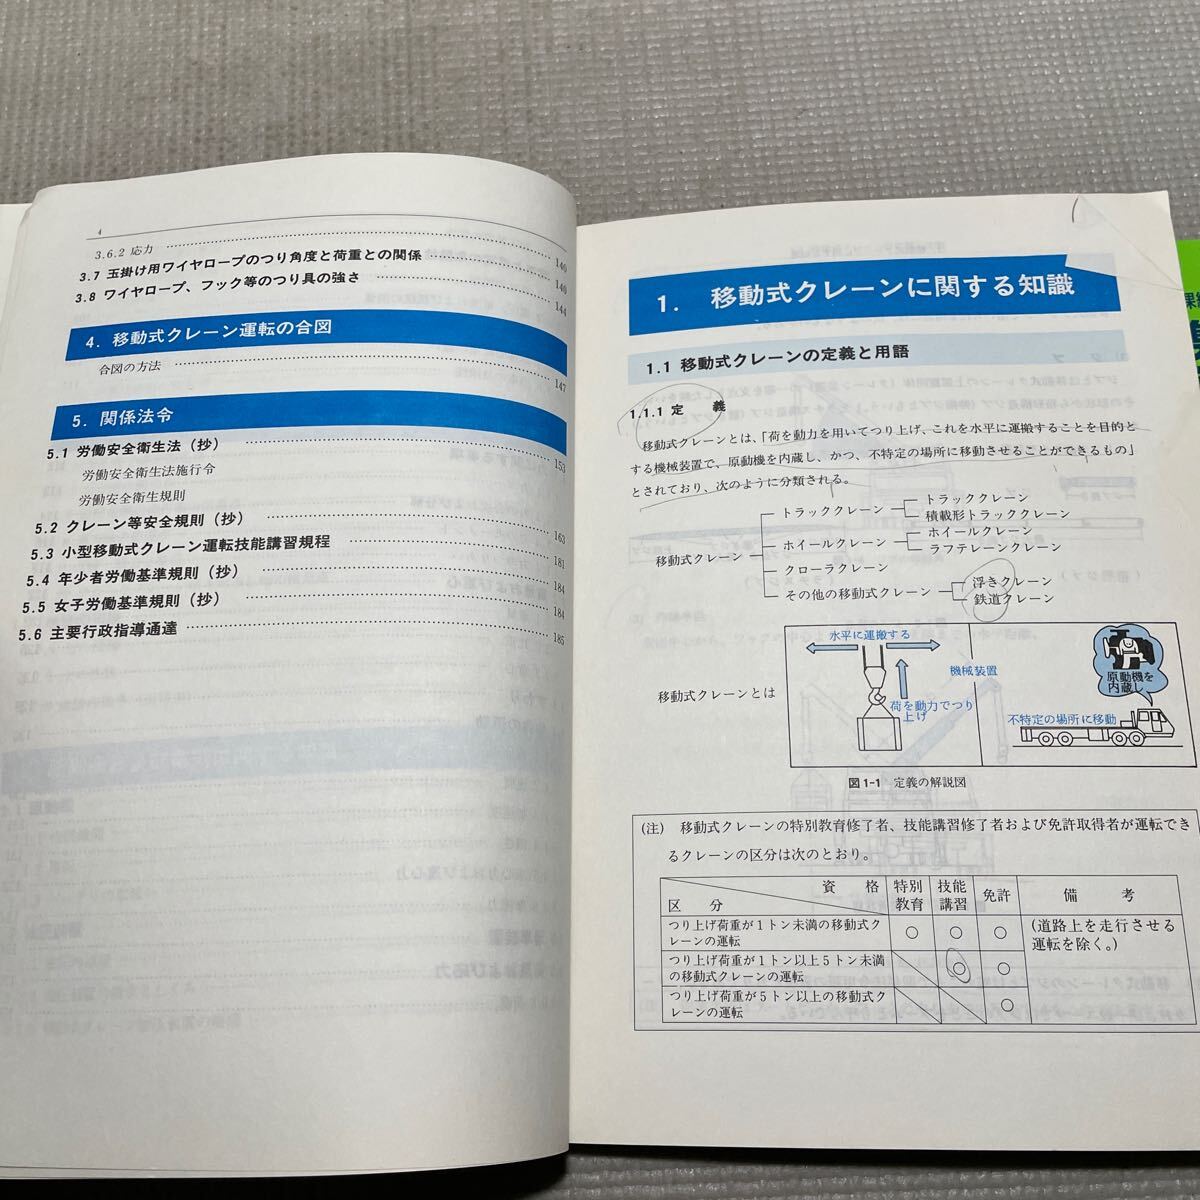 4
3.6.2 応力 140
3.7 玉掛け用ワイヤロープのつり角度と荷重との関係 140
3.8 ワイヤロープ、フック等のつり具の強さ 144
4. 移動式クレーン運転の合図
合図の方法 147
5. 関係法令
5.1 労働安全衛生法（抄） 153
労働安全衛生法施行令
労働安全衛生規則
5.2 クレーン等安全規則（抄） 163
5.3 小型移動式クレーン運転技能講習規程 181
5.4 年少者労働基準規則（抄） 184
5.5 女子労働基準規則（抄） 184
5.6 主要行政指導通達 185
1. 移動式クレーンに関する知識
1.1 移動式クレーンの定義と用語
1.1.1 定　義
移動式クレーンとは、「荷を動力を用いてつり上げ、これを水平に運搬することを目的と
する機械装置で、原動機を内蔵し、かつ、不特定の場所に移動させることができるもの」
とされており、次のように分類される。
移動式クレーン
トラッククレーン
トラッククレーン
積載形トラッククレーン
ホイールクレーン
ホイールクレーン
ラフテレーンクレーン
クローラクレーン
その他の移動式クレーン
浮きクレーン
鉄道クレーン
移動式クレーンとは
水平に運搬する
荷を動力でつり
上げ
機械装置
原動機を
内蔵し、
不特定の場所に移動
図1-1　定義の解説図
(注)　移動式クレーンの特別教育修了者、技能講習修了者および免許取得者が運転でき
るクレーンの区分は次のとおり。
資　格
区　分
特別
教育
技能
講習
免許
備　考
つり上げ荷重が１トン未満の移動式ク
レーンの運転
○ ○ ○
(道路上を走行させる
運転を除く。)
つり上げ荷重が１トン以上５トン未満
の移動式クレーンの運転
○ ○
つり上げ荷重が５トン以上の移動式ク
レーンの運転
○